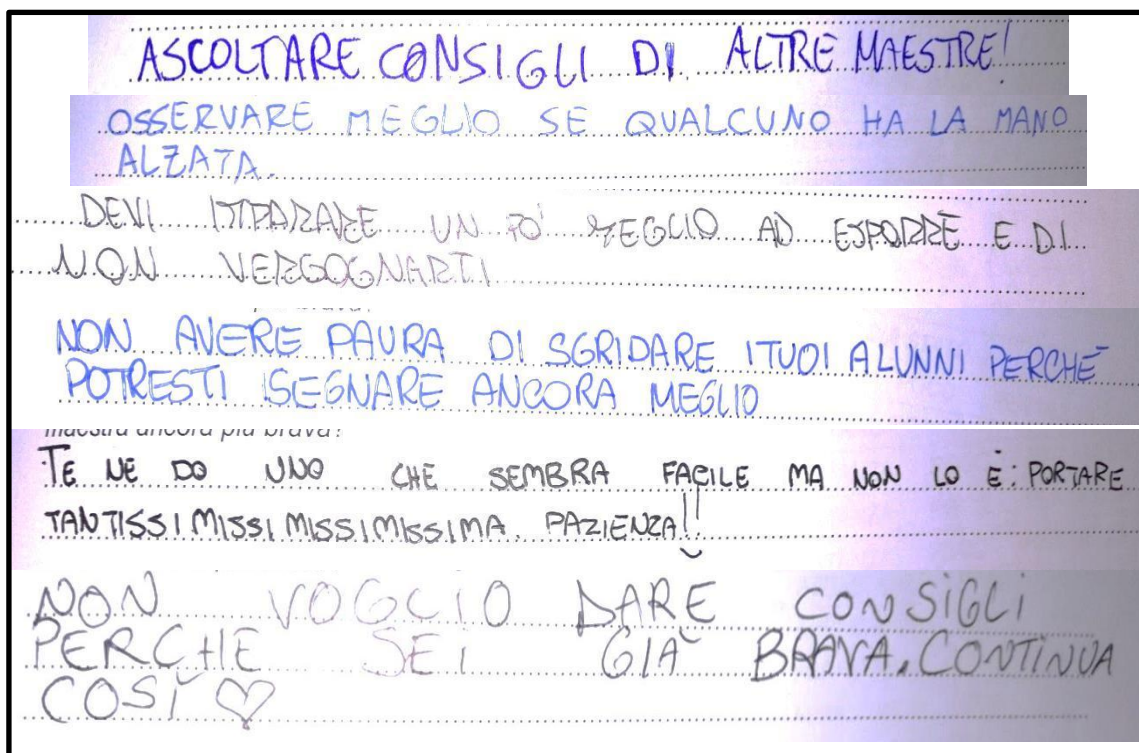 ASCOLTARE CONSIGLI DI ALTRE MAESTRE!
OSSERVARE MEGLIO SE QUALCUNO HA LA MANO
ALZATA.
DEVI IMPARARE UN PO' MEGLIO AD ESPORRE E DI
NON VERGOGNARTI
NON AVERE PAURA DI SGRIDARE I TUOI ALUNNI PERCHÉ
POTRESTI ISEGNARE ANCORA MEGLIO
maestra ancora più brava?
TE NE DO UNO CHE SEMBRA FACILE MA NON LO È: PORTARE
TANTISSIMISSIMISSIMISSIMA PAZIENZA!!
NON VOGLIO DARE CONSIGLI
PERCHE SEI GIÀ BRAVA. CONTINUA
COSÌ ♡